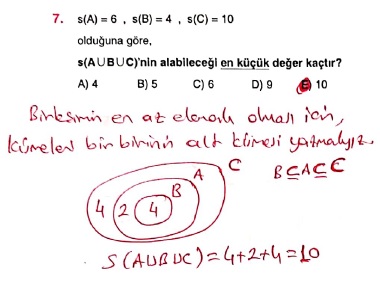 7. s(A) = 6 , s(B) = 4 , s(C) = 10
olduğuna göre,
s(A∪B∪C)'nin alabileceği en küçük değer kaçtır?
A) 4 B) 5 C) 6 D) 9 E) 10
Birleşimin en az elemanlı olması için,
kümeleri birbirinin alt kümesi yazmalıyız.
B⊆A⊆C
C
A
B
4 2 4
S(A∪B∪C)=4+2+4=10